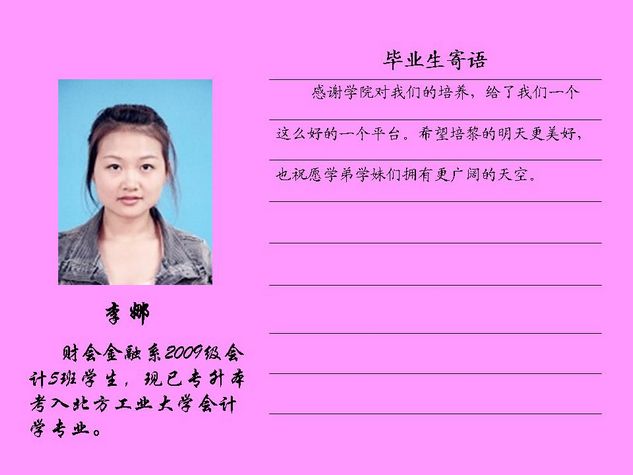 毕业生寄语
感谢学院对我们的培养，给了我们一个
这么好的一个平台。希望培黎的明天更美好，
也祝愿学弟学妹们拥有更广阔的天空。
李娜
财会金融系2009级会
计5班学生，现已专升本
考入北方工业大学会计
学专业。